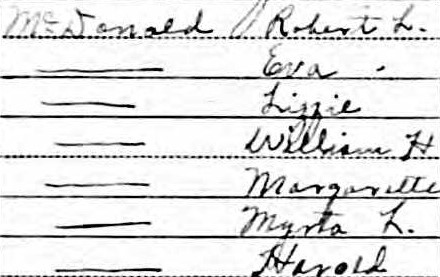 McDonald Robert L.
—— Eva
—— Lizzie
—— William H
—— Margarette
—— Myrta L.
—— Harold